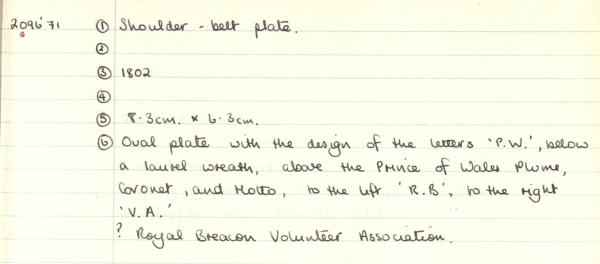 2096'71 ① Shoulder - belt plate.
②
③ 1802
④
⑤ 8.3cm. x 6.3cm.
⑥ Oval plate with the design of the letters 'P.W.', below
a laurel wreath, above the Prince of Wales Plume,
Coronet, and Motto, to the left 'R.B', to the right
'V.A.'
? Royal Breacon Volunteer Association.